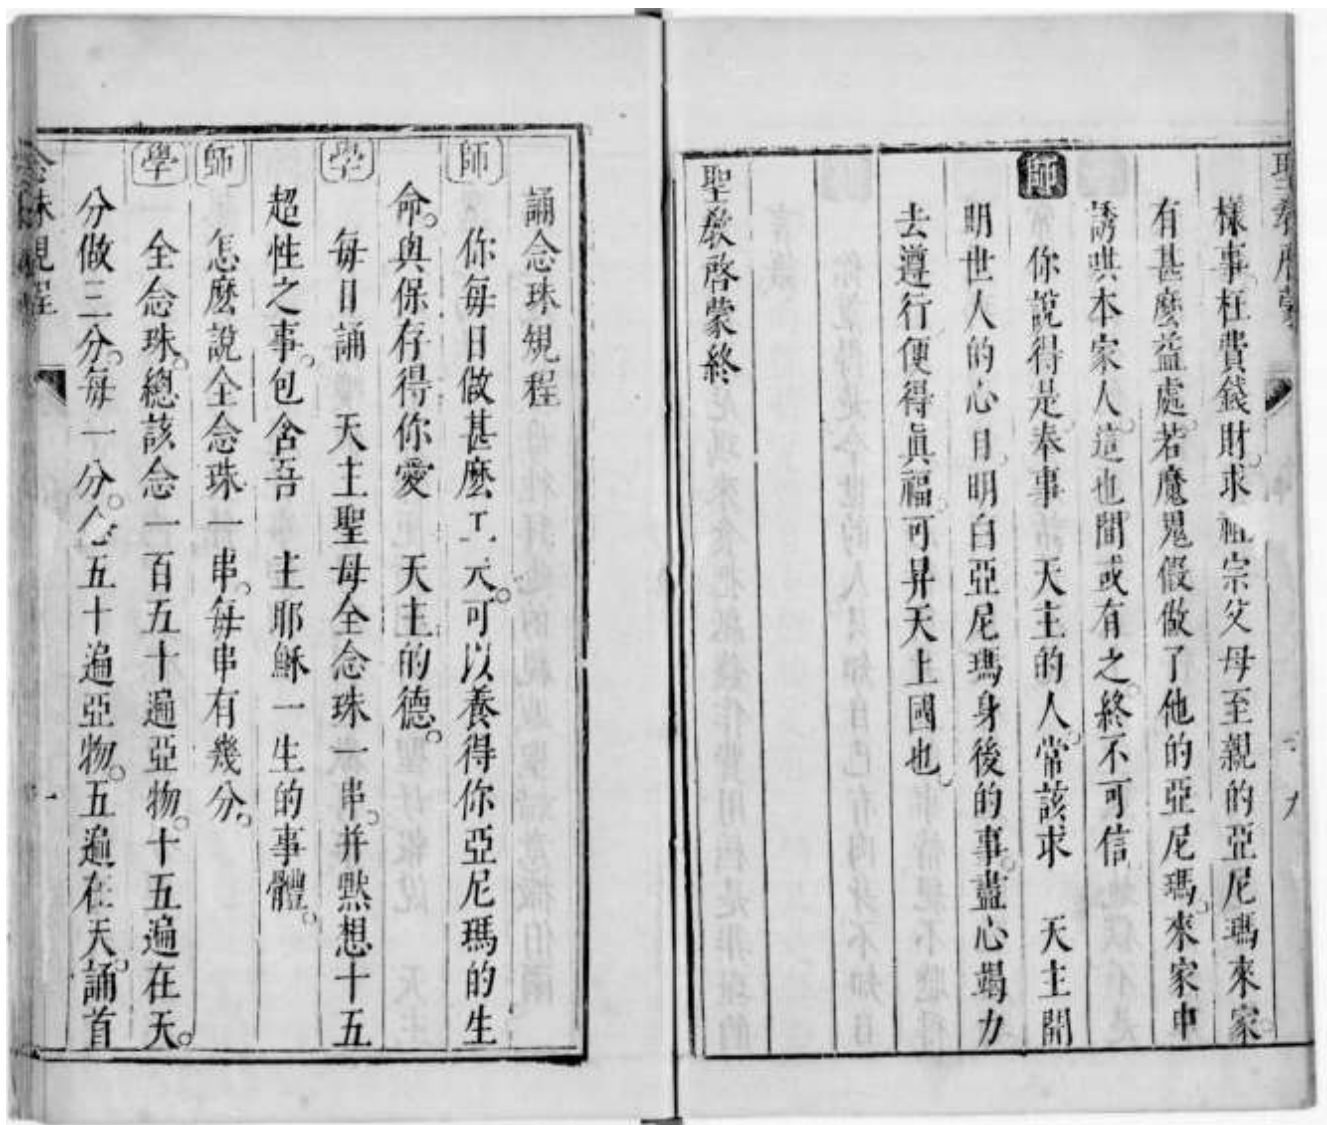 聖教啓蒙
樣事。枉費錢財。求祖宗父母至親的亞尼瑪來家。
有甚麽益處。若魔鬼假做了他的亞尼瑪。來家中
誘哄本家人。這也間或有之。終不可信。
師 你說得是。奉事 天主的人。常該求 天主開
明世人的心目。明白亞尼瑪身後的事。盡心竭力
去遵行。便得眞福。可昇天上國也。
聖教啓蒙終
誦念珠規程
師 你每日做甚麽工夫。可以養得你亞尼瑪的生
命。與保存得你愛 天主的德。
學 每日誦 天主聖母全念珠一串。并默想十五
超性之事。包含吾 主耶穌一生的事體。
師 怎麽說全念珠一串。每串有幾分。
學 全念珠。總該念一百五十遍亞物。十五遍在天。
分做三分。每一分。念五十遍亞物。五遍在天。誦首
念珠規程 一